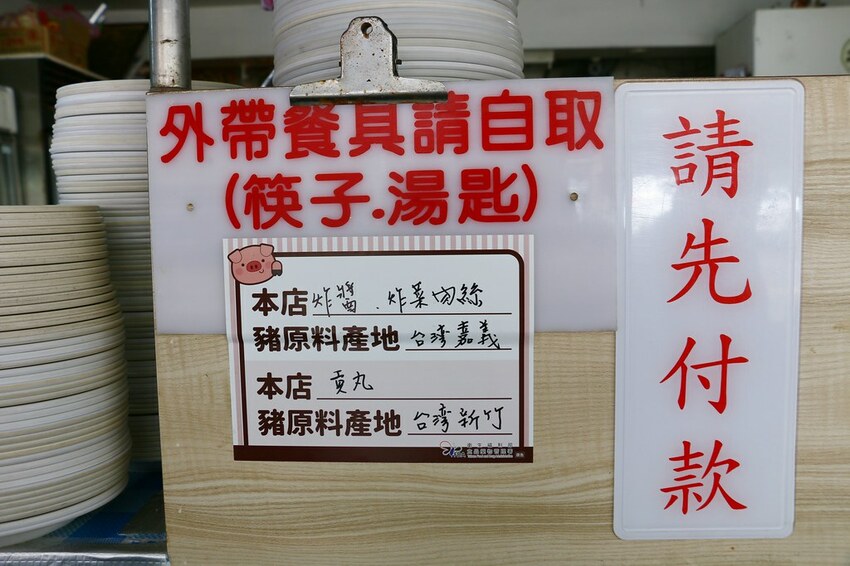 外帶餐具請自取
(筷子.湯匙)
本店 炸醬.炸菜肉絲
豬原料產地 台灣嘉義
本店 貢丸
豬原料產地 台灣新竹
請先付款